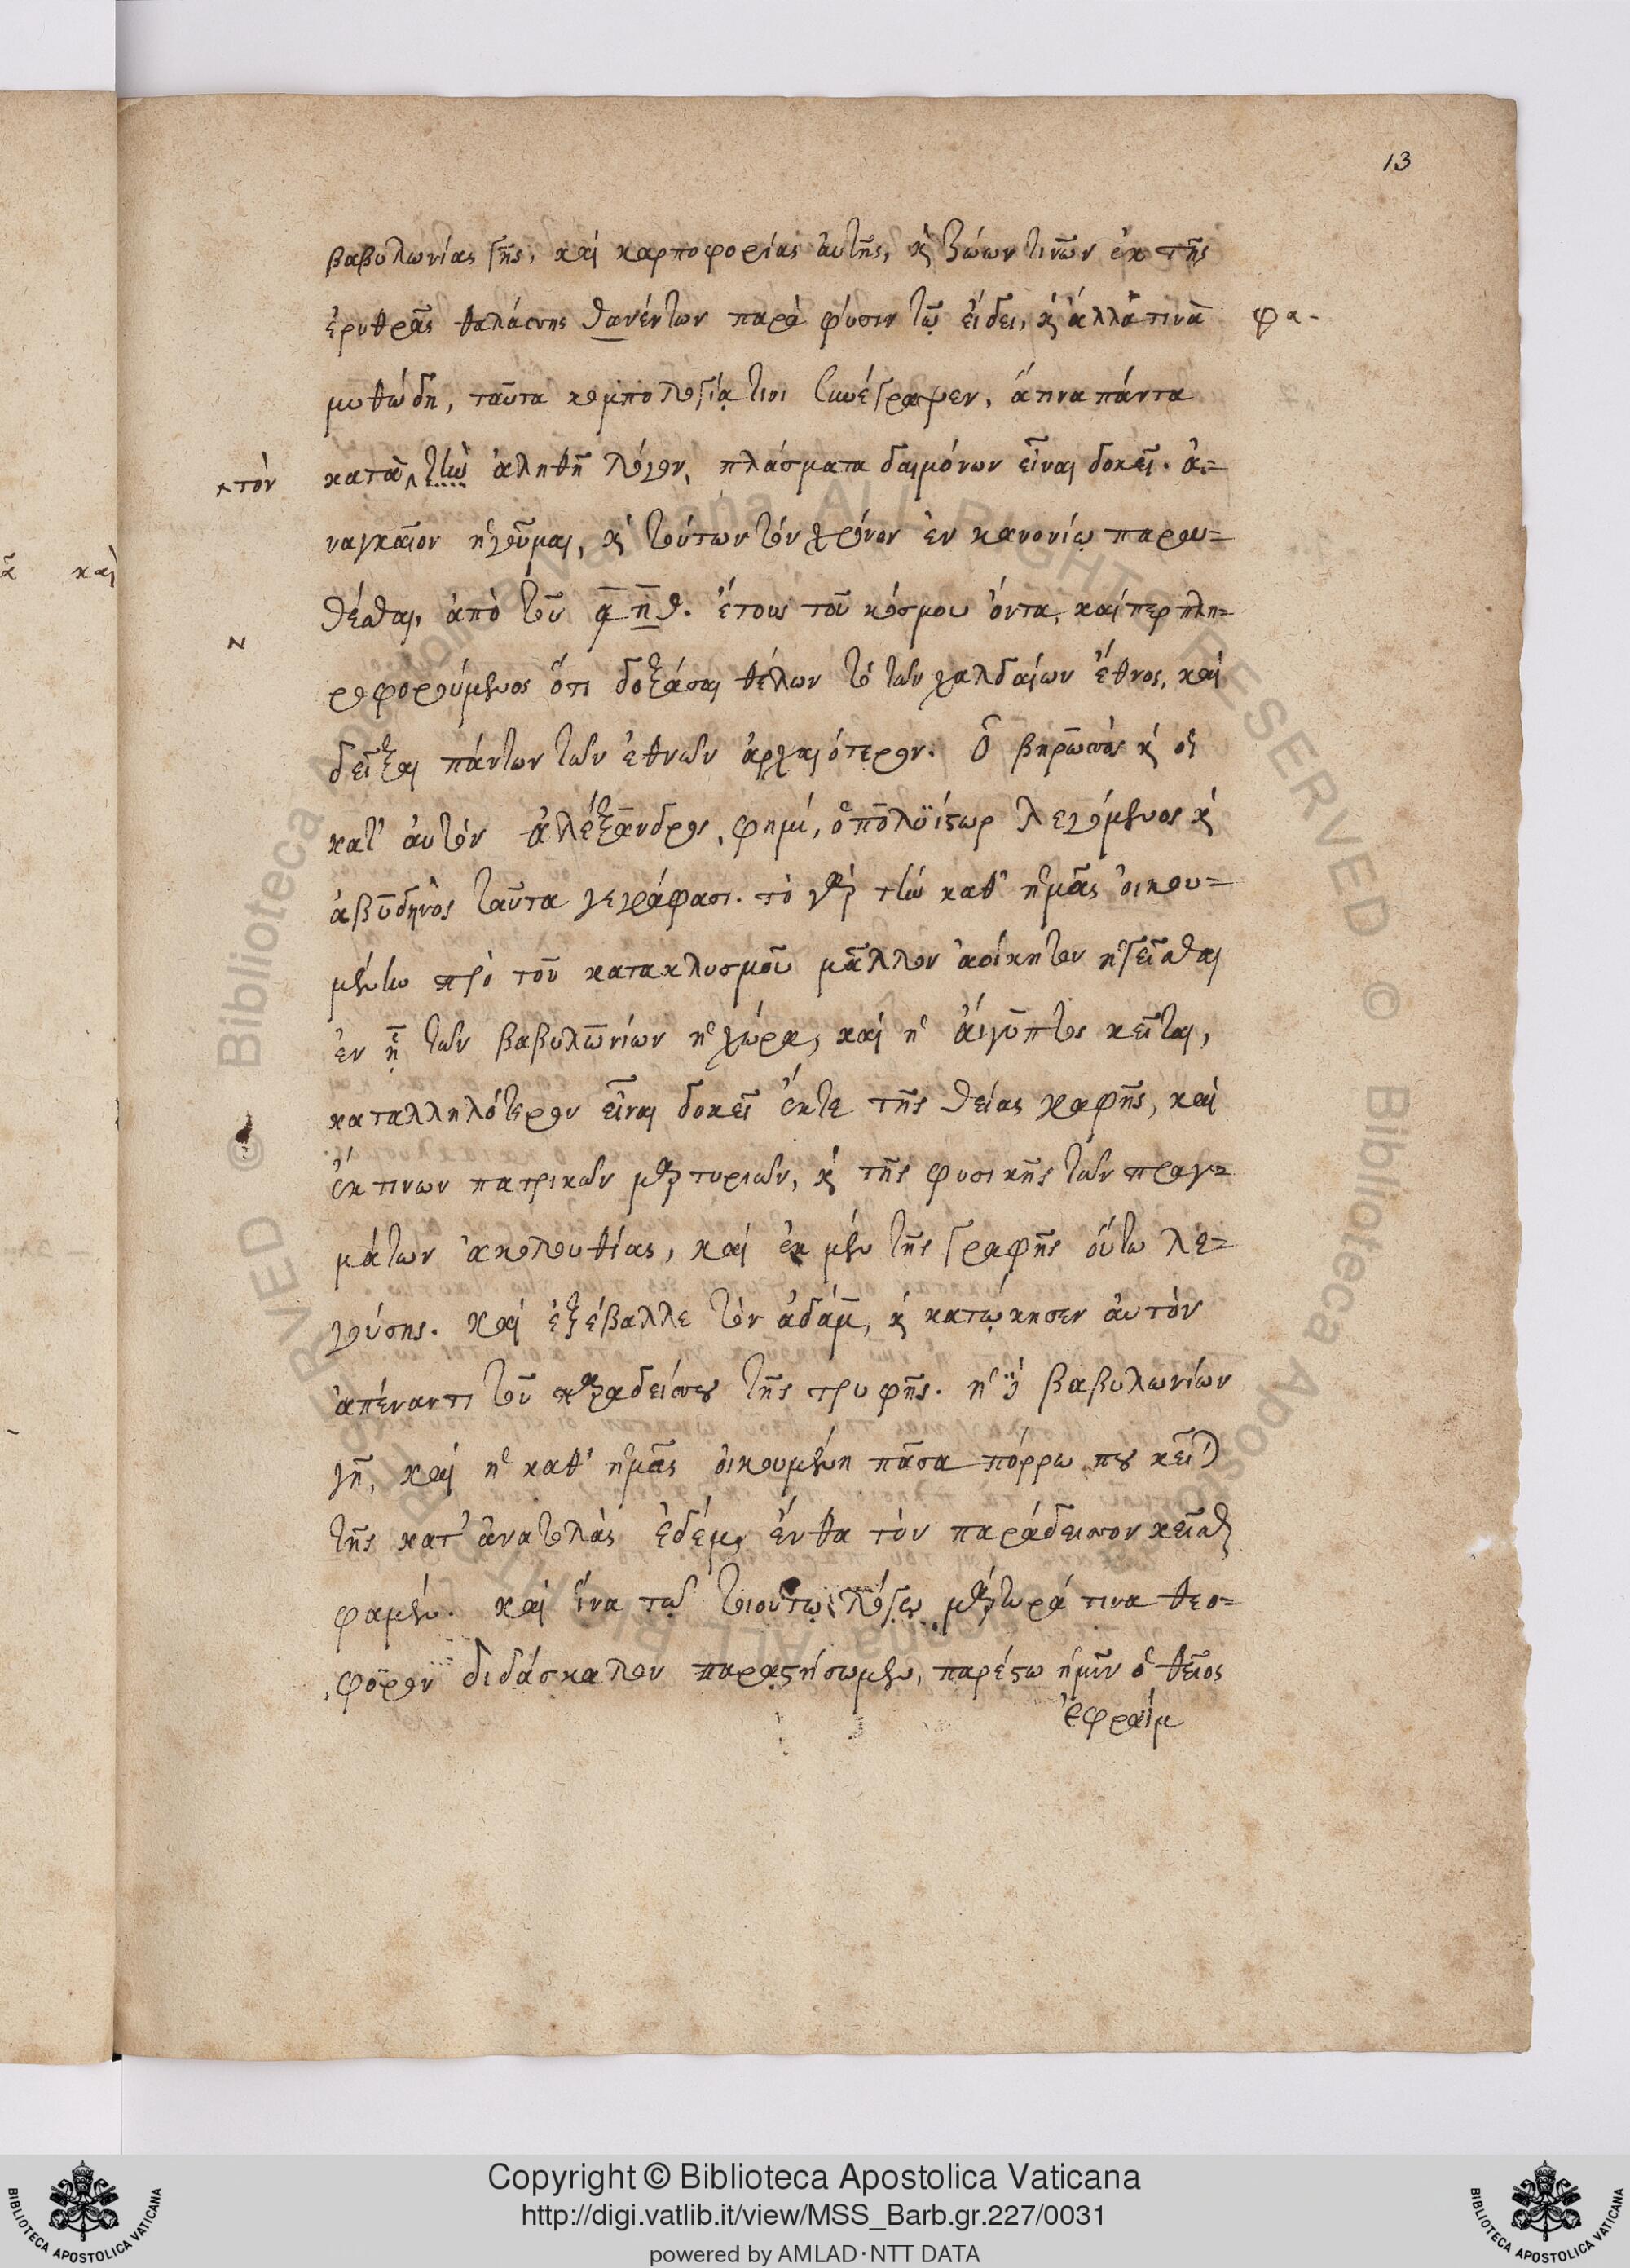 13
βαβυλωνίας γῆς, καὶ καρποφορίας ἀυτῆς, κὶ ζώων τινῶν ἐκ τῆς
ἐρυθρᾶς θαλάσσης θανέντων παρὰ φύσιν τῷ εἴδει, κὶ ἄλλά τινὰ φα-
μυθώδη, ταῦτα κομπολογίᾳ τινι συνέγραψεν, ἅτινα πάντα
τὸν κατὰ τὴν ἀληθῆ λόγον, πλάσματα δαιμόνων εἶναι δοκεῖ. ἀ=
ναγκαῖον ἡγοῦμαι, κὶ τούτων τὸν χρόνον ἐν κανονίῳ παρου=
θέσθαι, ἀπὸ τοῦ ͵α π θ. ἔτους τοῦ κόσμου ὄντα, καίπερ πλη=
ροφορούμενος ὅτι δοξάσαι θέλων τὸ τῶν χαλδαίων ἔθνος, καὶ
δεῖξαι πάντων τῶν ἐθνῶν ἀρχαιότερον. Ὁ βηρωσὸς κὶ οἱ
κατ' ἀυτὸν ἀλέξανδρος, φημὶ, ὁ πολυΐστωρ λεγόμενος κὶ
ἀβυδηνὸς ταῦτα γεγράφασι. τὸ γὰρ τὴν καθ' ἡμᾶς οἰκου=
μένην πρὸ τοῦ κατακλυσμοῦ μᾶλλον ἀοίκητον ἡγεῖσθαι
ἐν ᾗ τῶν βαβυλωνίων ἡ χώρα, καὶ ἡ ἀίγυπτος κεῖται,
καταλληλότερον εἶναι δοκεῖ ἔκτε τῆς θείας γραφῆς, καὶ
ἔκ τινων πατρικῶν μαρτυριῶν, κὶ τῆς φυσικῆς τῶν πραγ=
μάτων ἀκολουθίας, καὶ ἐκ μὲν τῆς γραφῆς ὁύτω λε=
γούσης. καὶ ἐξέβαλλε τὸν ἀδάμ, κὶ κατῴκησεν ἀυτὸν
ἀπέναντι τοῦ παραδείσου τῆς τρυφῆς. ἡ δὲ βαβυλωνίων
γῆ, καὶ ἡ καθ' ἡμᾶς οἰκουμένη πᾶσα πόρρω που κεῖται
τῆς κατ' ἀνατολὰς ἐδέμ, ἔνθα τὸν παράδεισον κεῖσθαι
φαμέν. καὶ ἵνα τῷ τοιούτῳ λόγῳ μάρτυρά τινα θεο=
φόρον διδάσκαλον παραστήσωμεν, παρέστω ἡμῖν ὁ θεῖος
ἐφραΐμ
ᾶ καὶ
Copyright © Biblioteca Apostolica Vaticana
http://digi.vatlib.it/view/MSS_Barb.gr.227/0031
powered by AMLAD·NTT DATA
BIBLIOTECA APOSTOLICA VATICANA
BIBLIOTECA APOSTOLICA VATICANA